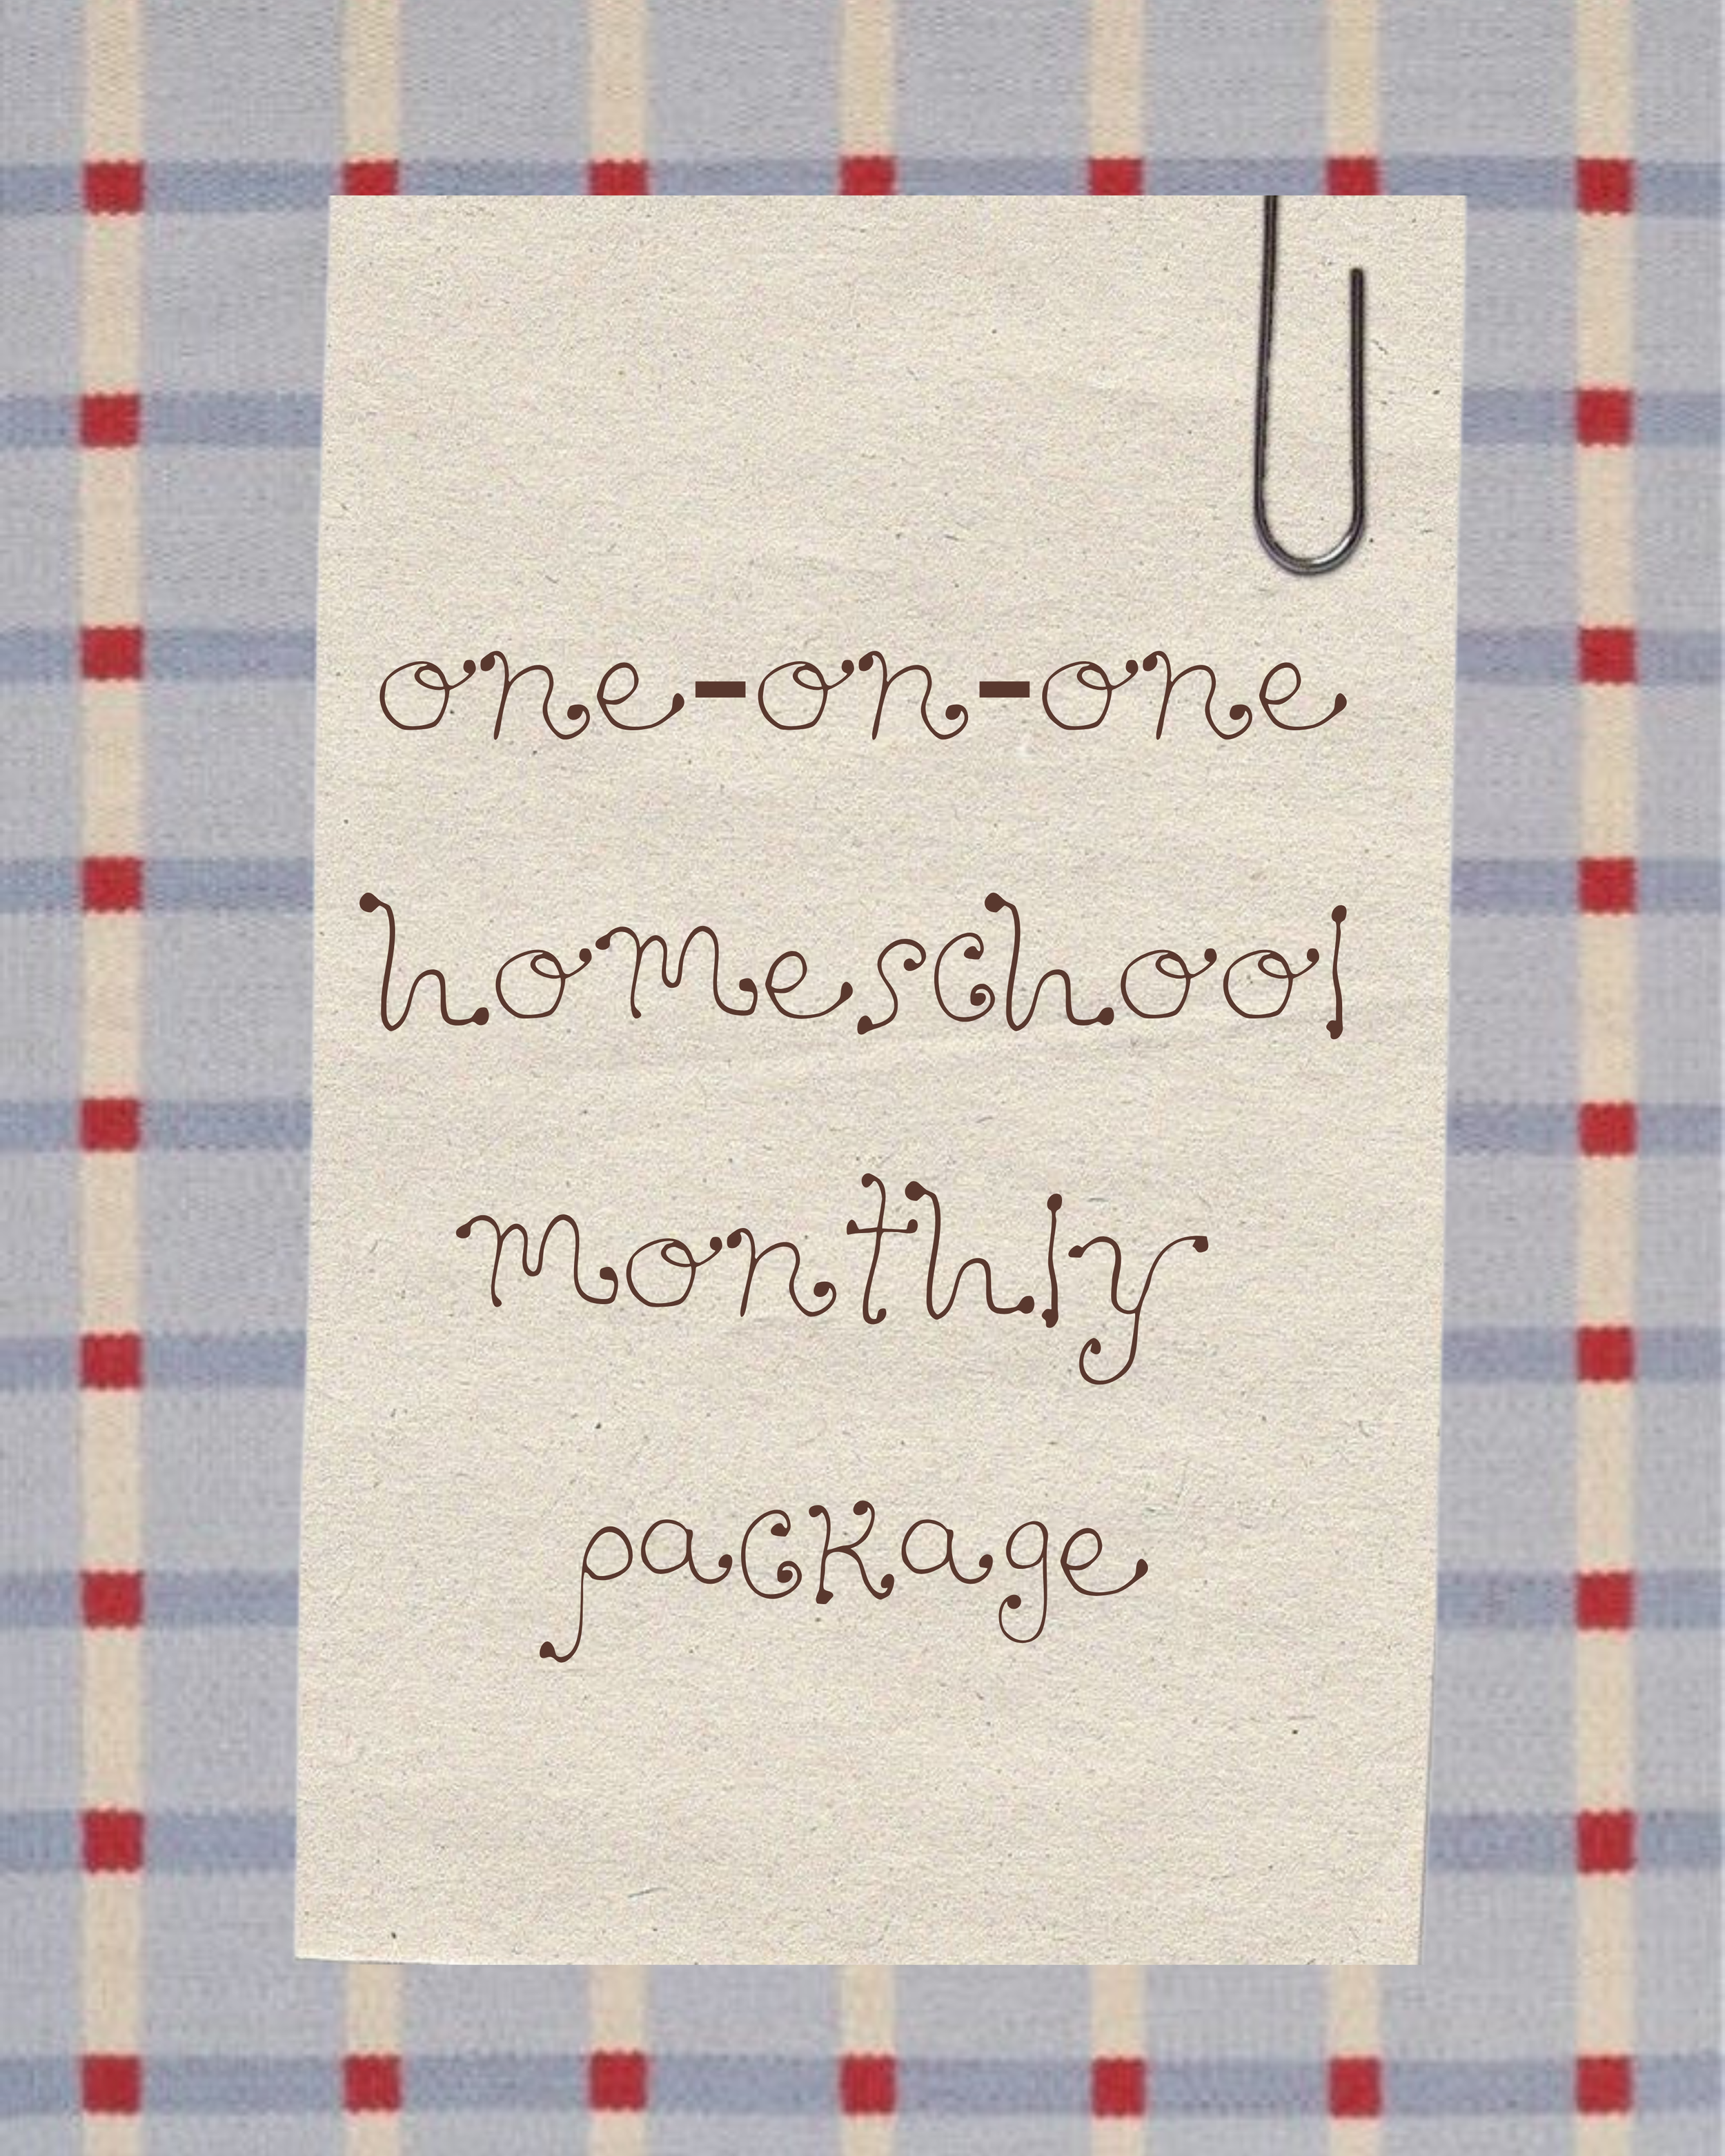 one-on-one
homeschool
monthly
package